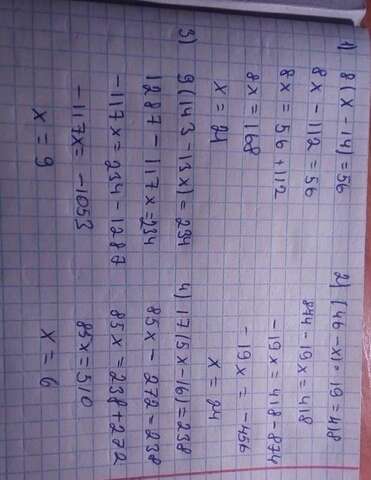 1) 8(x-14)=56
8x-112=56
8x=56+112
8x=168
x=21
2) (46-x)·19=418
874-19x=418
-19x=418-874
-19x=-456
x=24
3) 9(143-13x)=234
1287-117x=234
-117x=234-1287
-117x=-1053
x=9
4) 17(5x-16)=238
85x-272=238
85x=238+272
85x=510
x=6